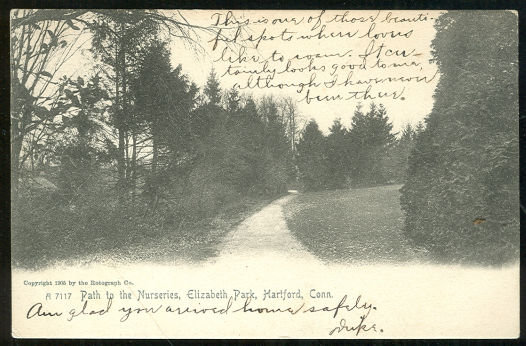 This is one of those beauti-
ful spots where lovers
like to roam. It cer-
tainly looks good to me,
although I have never
been there.
Copyright 1905 by the Rotograph Co.
A 7117 Path to the Nurseries, Elizabeth Park, Hartford, Conn.
Am glad you arrived home safely.
Duke.